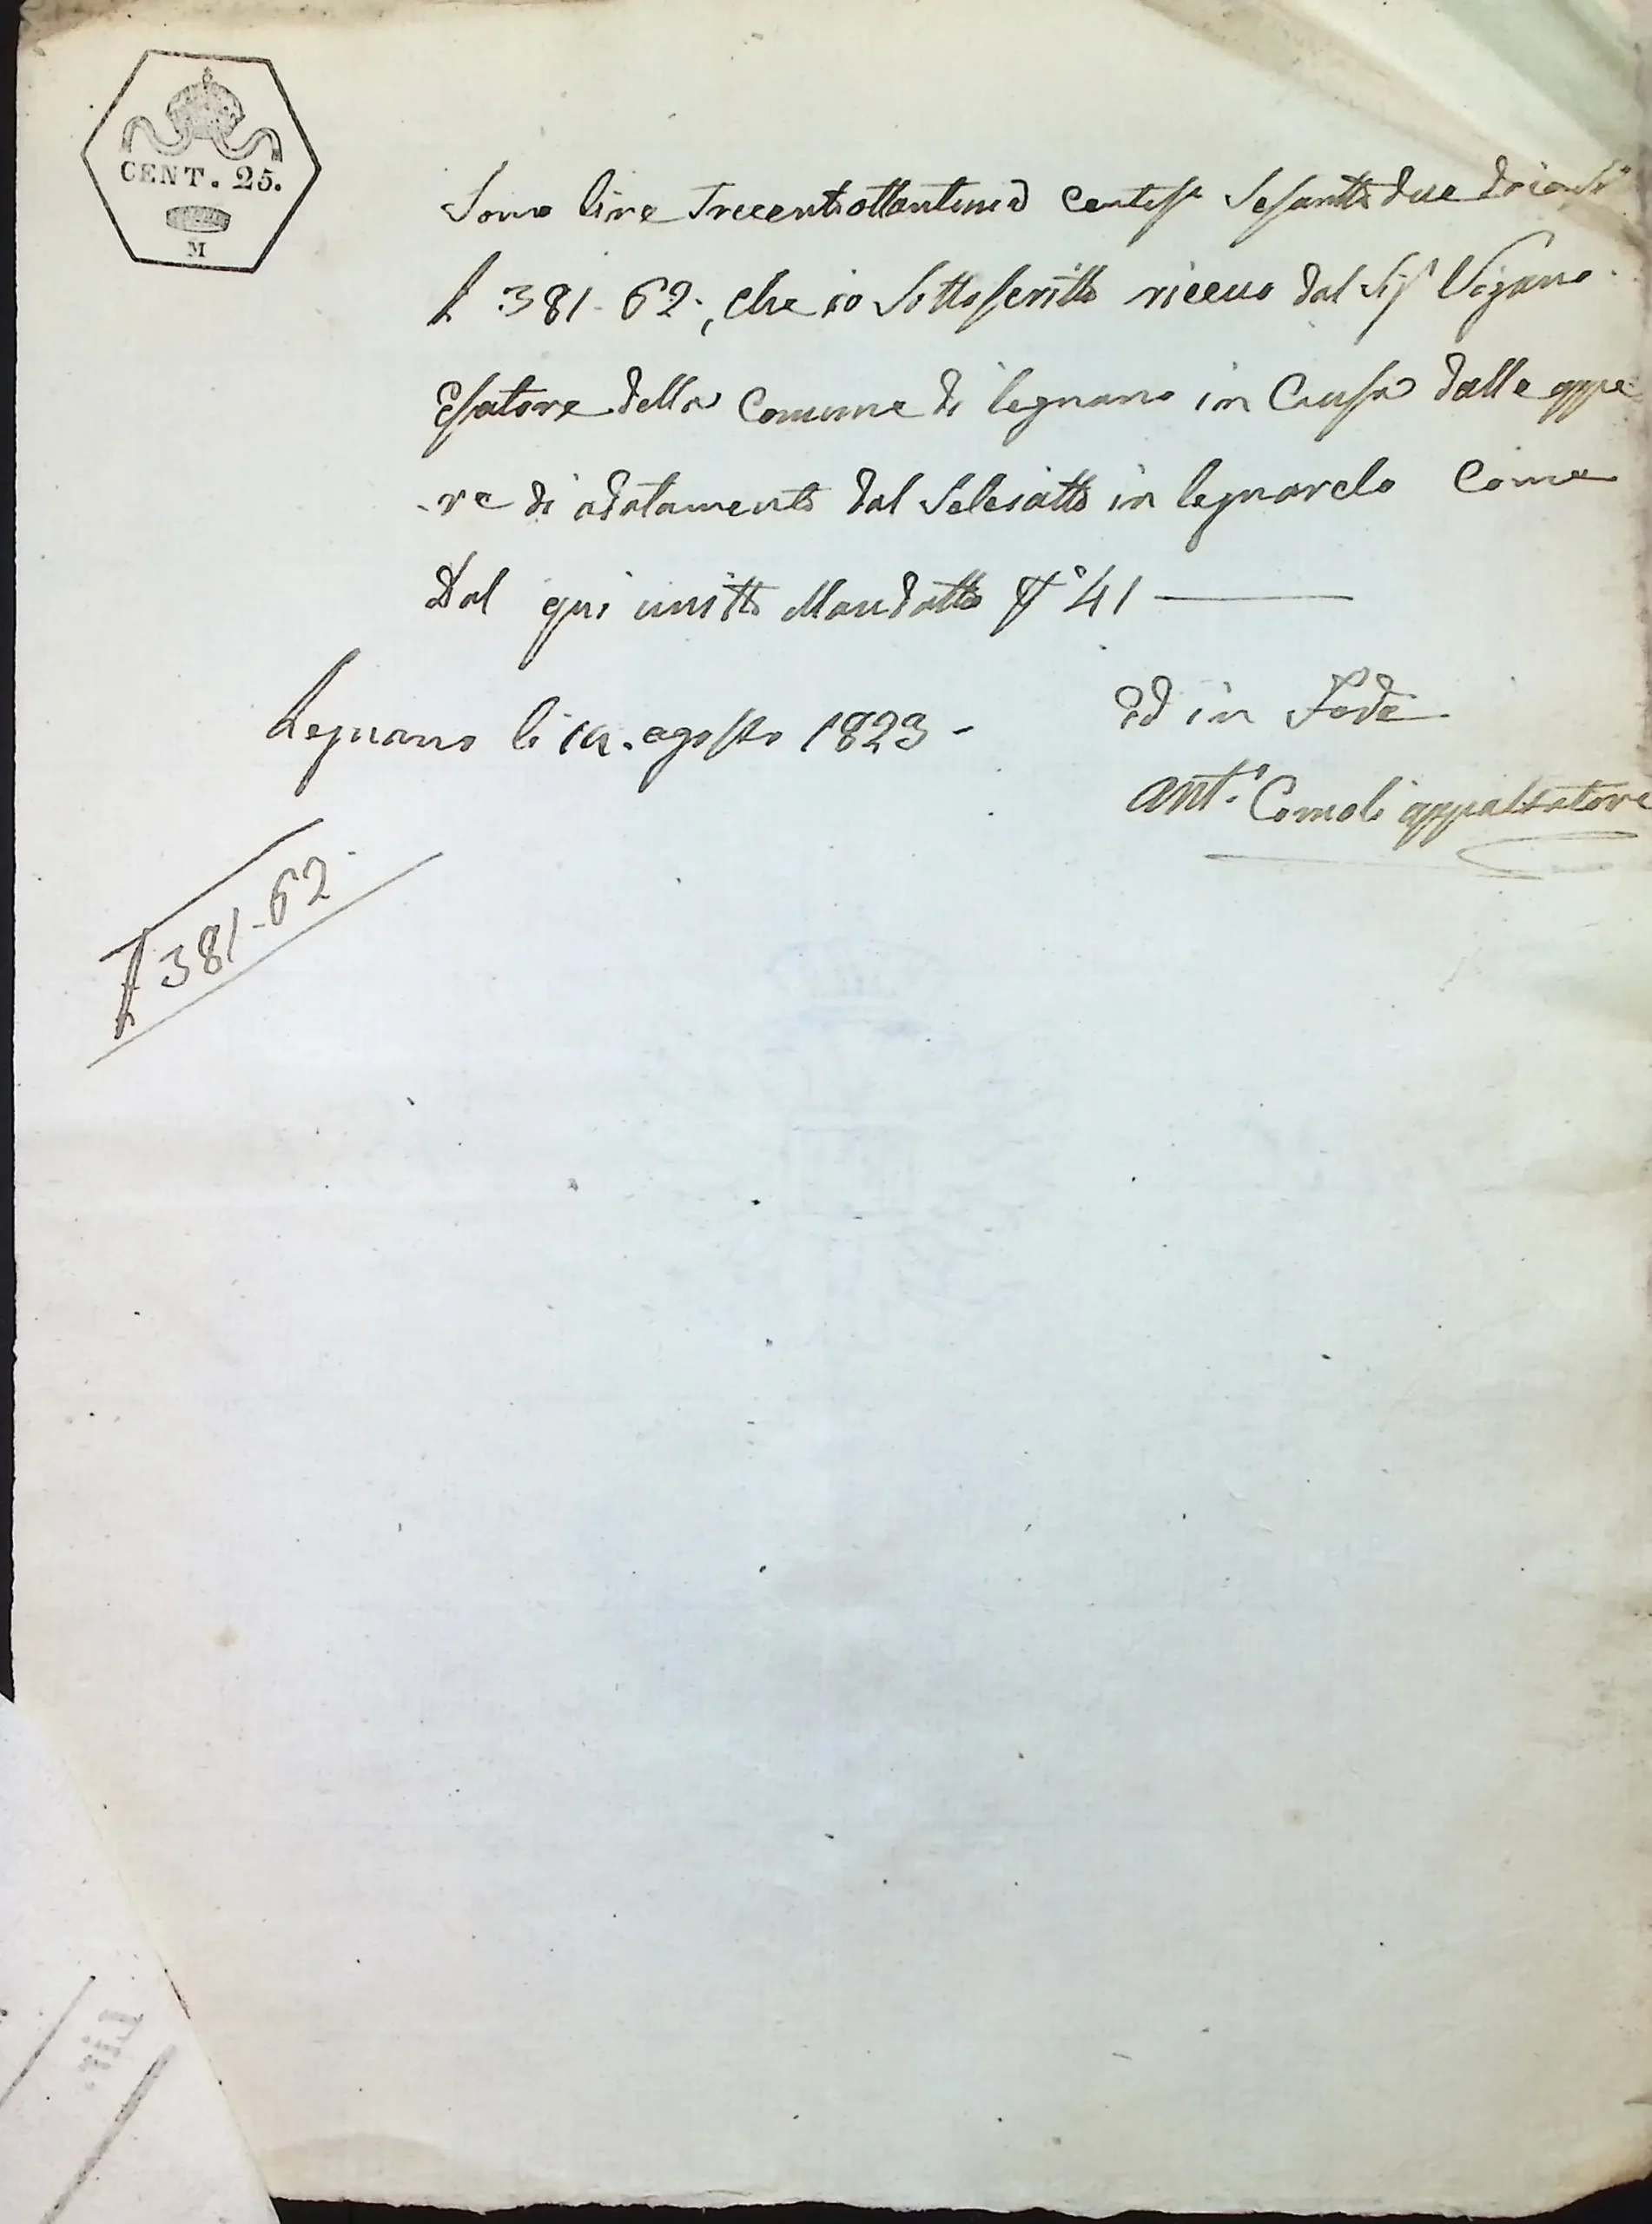 CENT. 25.
M
Sono lire Trecentottantuna Centesi Sesantta due dicosi
L 381-62:, che io Sottoscritto riceuo dal Sig Vigano
Esatore della Comune di legnano in Causa dalle oppe
-re di adatamento dal Selciatto in legnarelo Come
Dal qui unitto Mandatto N° 41
Legnano li agosto 1823 -
Ed in Fede
Ant.° Comoli appaltatore
L 381-62